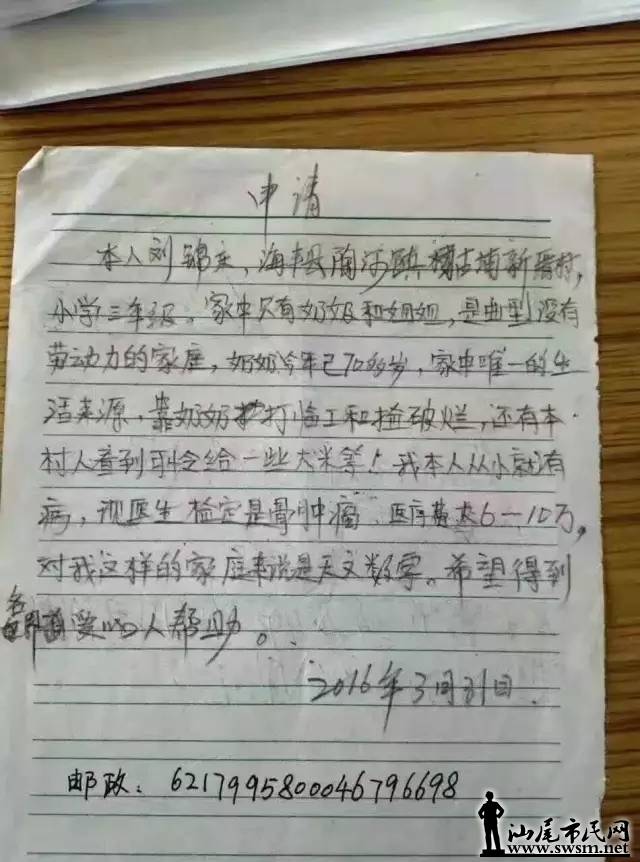 申请
本人刘锦庄，海丰县陶河镇 埔新村，
小学三年级。家中只有奶奶和姐姐，是典型没有
劳动力的家庭，奶奶今年已70多岁，家中唯一的生
活来源，靠奶奶打临工和捡破烂，还有本
村人看到可怜给一些大米等！我本人从小就有
病，现医生检定是骨肿瘤．医疗费大6—10万，
对我这样的家庭来说是天文数字。希望得到
各界 爱心人帮助。
2016年3月31日．
邮政：6217995800046796698
汕尾市民网
www.swsm.net